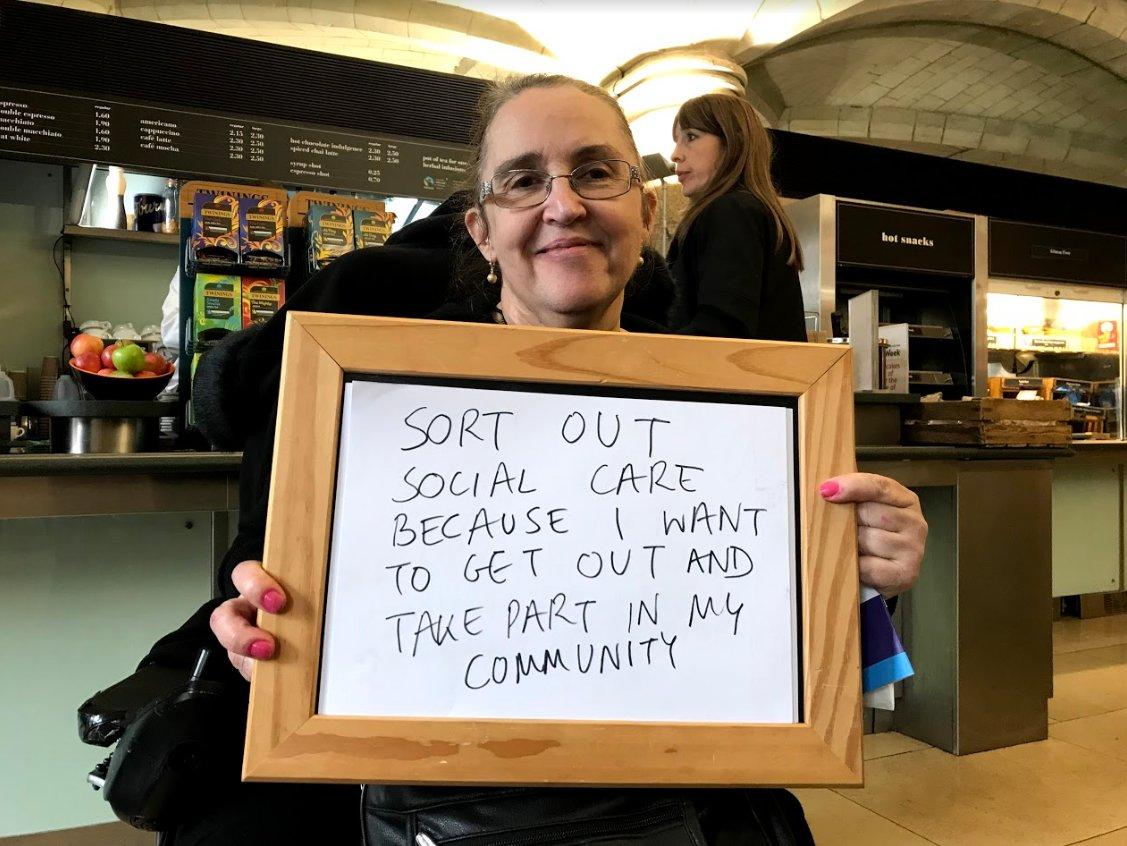 espresso
double espresso
macchiato
double macchiato
flat white
regular
1.60
1.90
1.60
1.90
2.30
americano
cappuccino
café latte
café mocha
regular
large
2.15 2.50
2.30 2.50
2.30 2.50
2.30 2.50
hot chocolate indulgence
spiced chai latte
syrup shot
espresso shot
2.30 2.50
2.30 2.50
0.25
0.70
pot of tea for one
herbal infusions
FAIRTRADE
TWININGS
TWININGS
TWININGS
TWININGS
TWININGS
hot snacks
Week
SORT OUT
SOCIAL CARE
BECAUSE I WANT
TO GET OUT AND
TAKE PART IN MY
COMMUNITY